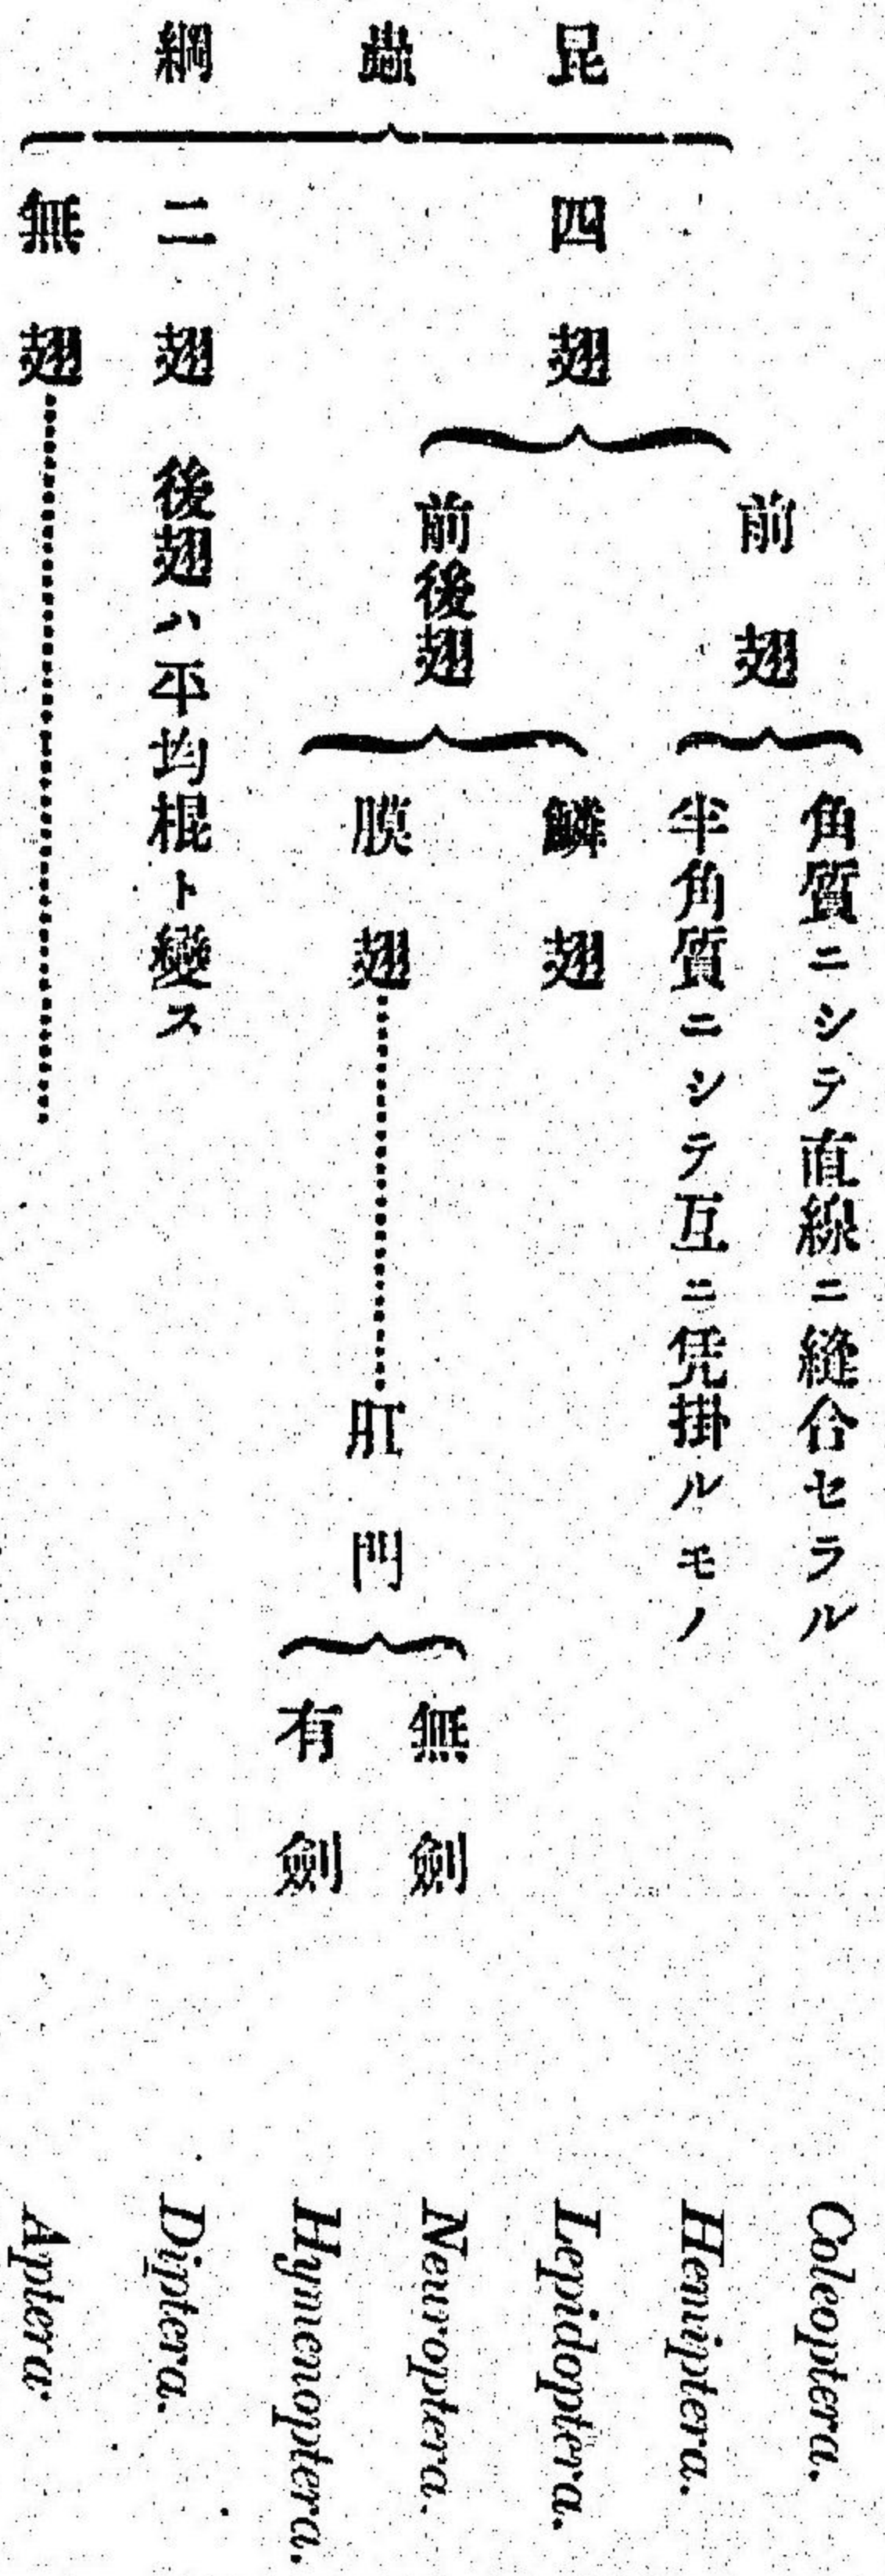 昆蟲綱
四翅
前翅
角質ニシテ直線ニ縫合セラル
Coleoptera.
半角質ニシテ互ニ凭掛ルモノ
Hemiptera.
前後翅
鱗翅
Lepidoptera.
膜翅
肛門
無劍
Neuroptera.
有劍
Hymenoptera.
二翅 後翅ハ平均棍ト變ス
Diptera.
無翅
Aptera.